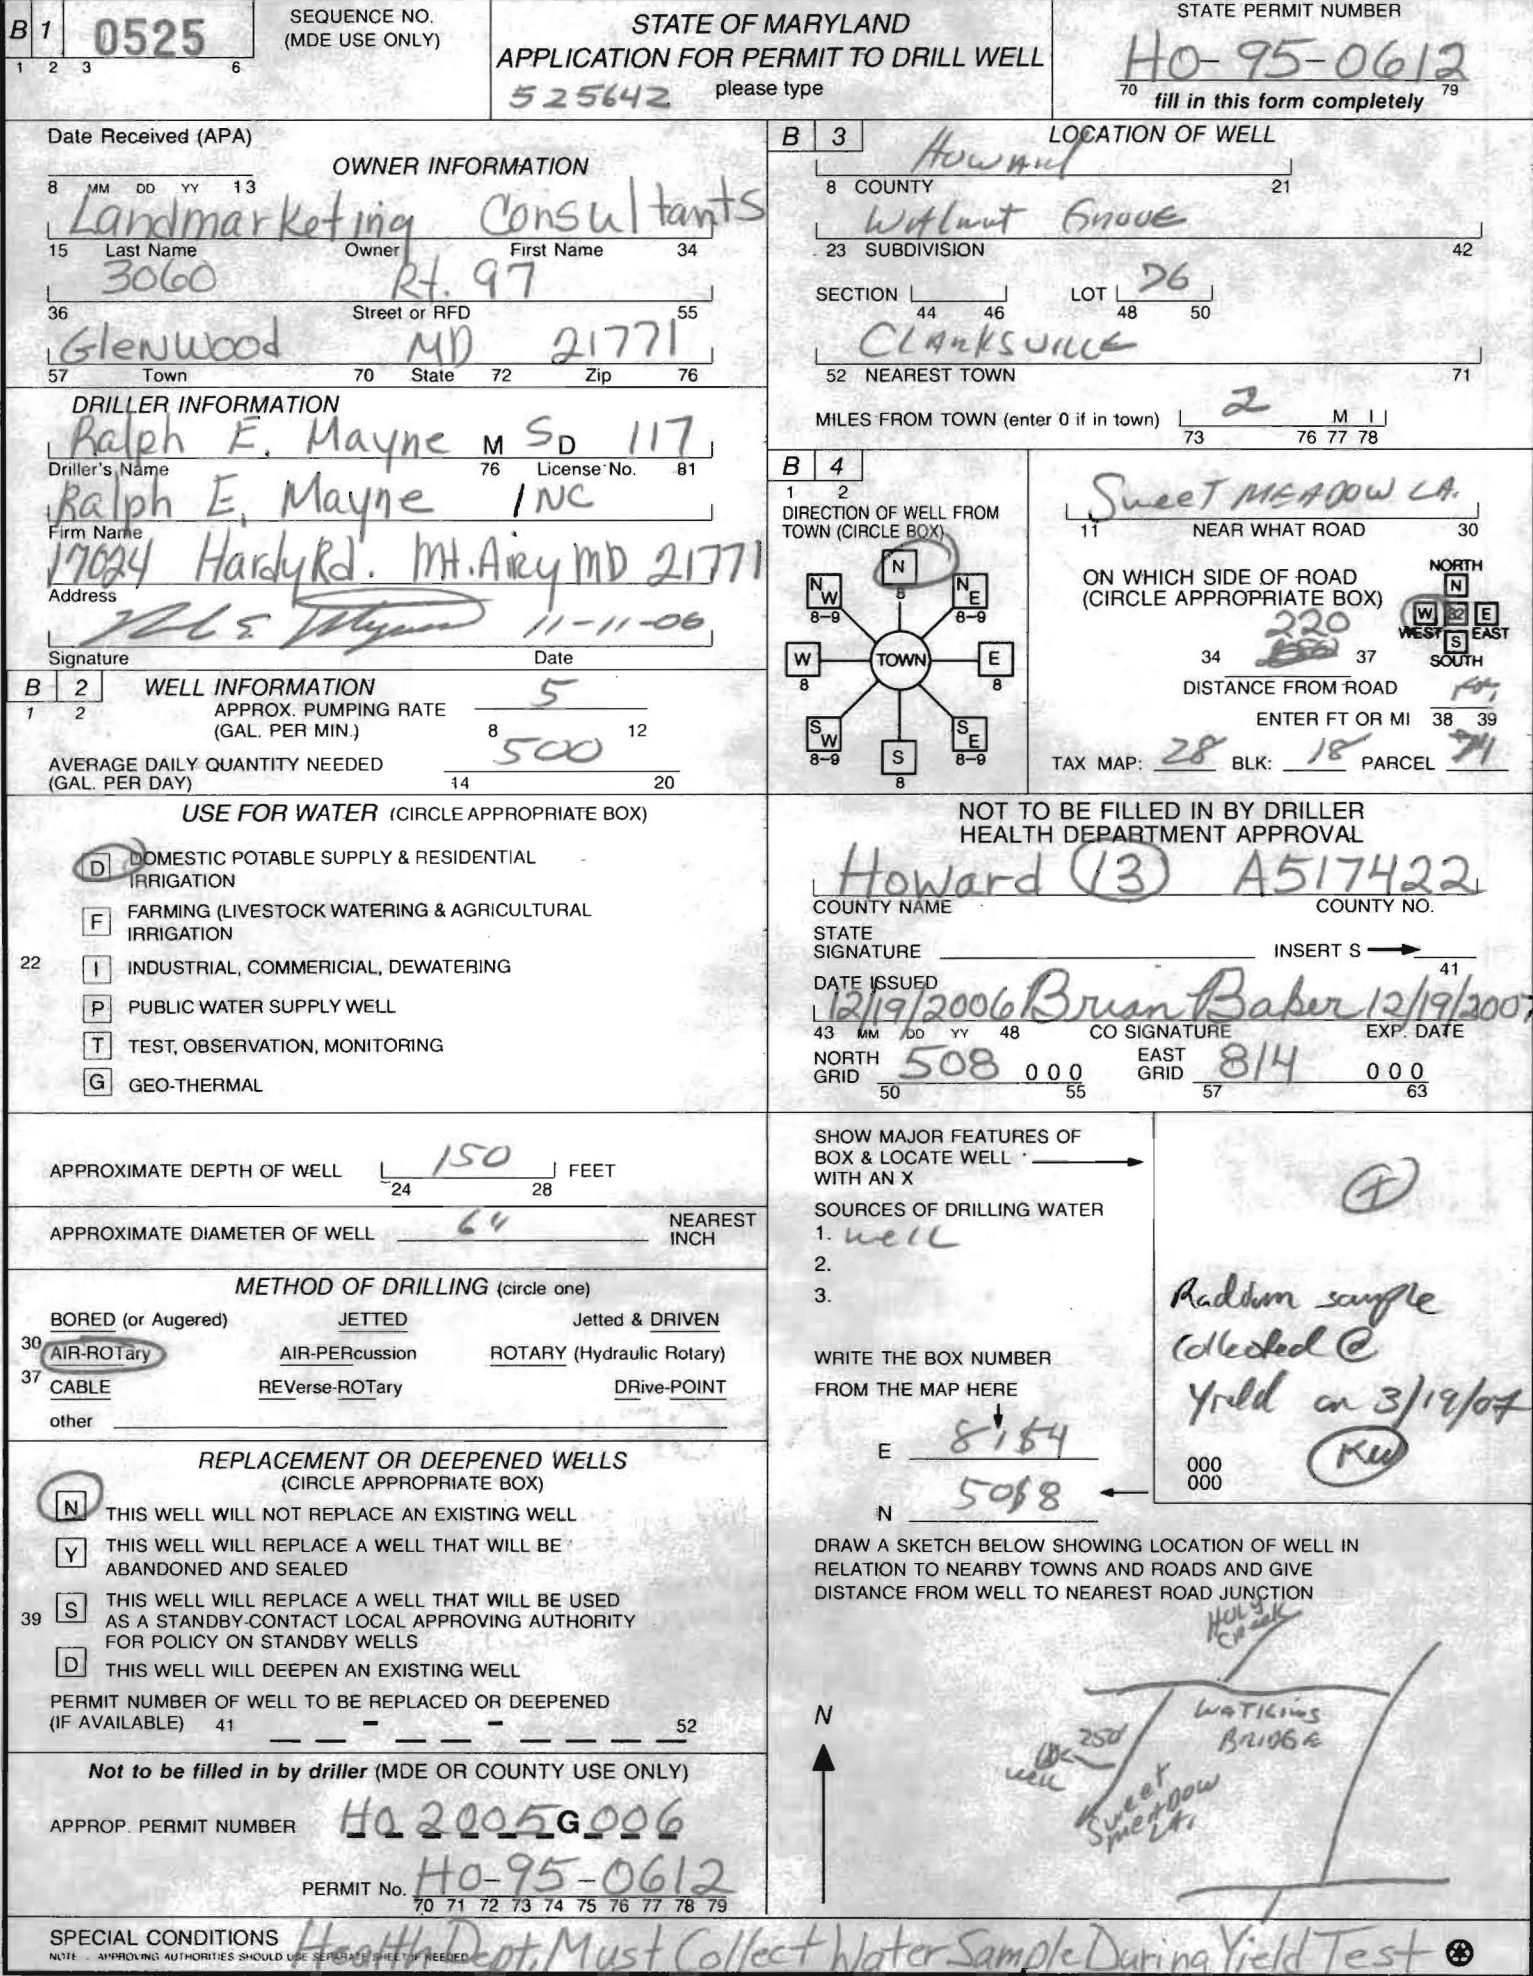 B 1 0525
1 2 3 6
SEQUENCE NO.
(MDE USE ONLY)
STATE OF MARYLAND
APPLICATION FOR PERMIT TO DRILL WELL
525642 please type
STATE PERMIT NUMBER
HO-95-0612
70 79
fill in this form completely
Date Received (APA)
OWNER INFORMATION
8 MM DD YY 13
Landmarketing Consultants
15 Last Name Owner First Name 34
3060 Rt. 97
36 Street or RFD 55
Glenwood MD 21771
57 Town 70 State 72 Zip 76
DRILLER INFORMATION
Ralph E. Mayne M S D 117
Driller's Name 76 License No. 81
Ralph E. Mayne INC
Firm Name
17024 Hardy Rd. Mt. Airy MD 21771
Address
11-11-06
Signature Date
B 2 WELL INFORMATION
1 2
APPROX. PUMPING RATE 5
(GAL. PER MIN.) 8 12
AVERAGE DAILY QUANTITY NEEDED 500
(GAL. PER DAY) 14 20
USE FOR WATER (CIRCLE APPROPRIATE BOX)
D DOMESTIC POTABLE SUPPLY & RESIDENTIAL
IRRIGATION
F FARMING (LIVESTOCK WATERING & AGRICULTURAL
IRRIGATION
22 I INDUSTRIAL, COMMERICIAL, DEWATERING
P PUBLIC WATER SUPPLY WELL
T TEST, OBSERVATION, MONITORING
G GEO-THERMAL
APPROXIMATE DEPTH OF WELL 150 FEET
24 28
APPROXIMATE DIAMETER OF WELL 6" NEAREST
INCH
METHOD OF DRILLING (circle one)
BORED (or Augered) JETTED Jetted & DRIVEN
30 AIR-ROTary AIR-PERcussion ROTARY (Hydraulic Rotary)
37 CABLE REVerse-ROTary DRive-POINT
other
REPLACEMENT OR DEEPENED WELLS
(CIRCLE APPROPRIATE BOX)
N THIS WELL WILL NOT REPLACE AN EXISTING WELL
Y THIS WELL WILL REPLACE A WELL THAT WILL BE
ABANDONED AND SEALED
39 S THIS WELL WILL REPLACE A WELL THAT WILL BE USED
AS A STANDBY-CONTACT LOCAL APPROVING AUTHORITY
FOR POLICY ON STANDBY WELLS
D THIS WELL WILL DEEPEN AN EXISTING WELL
PERMIT NUMBER OF WELL TO BE REPLACED OR DEEPENED
(IF AVAILABLE) 41 - - 52
Not to be filled in by driller (MDE OR COUNTY USE ONLY)
APPROP. PERMIT NUMBER HO 2005 G 006
PERMIT No. HO-95-0612
70 71 72 73 74 75 76 77 78 79
B 3 LOCATION OF WELL
Howard
8 COUNTY 21
Walnut Grove
23 SUBDIVISION 42
SECTION LOT 76
44 46 48 50
Clarksville
52 NEAREST TOWN 71
MILES FROM TOWN (enter 0 if in town) 2 M I
73 76 77 78
B 4
1 2
DIRECTION OF WELL FROM
TOWN (CIRCLE BOX)
N
8
NW NE
8-9 8-9
W TOWN E
8 8
SW SE
8-9 S 8-9
8
Sweet Meadow LA.
11 NEAR WHAT ROAD 30
ON WHICH SIDE OF ROAD
(CIRCLE APPROPRIATE BOX)
NORTH
N
W 32 E
WEST EAST
S
SOUTH
220
34 37
DISTANCE FROM ROAD
ENTER FT OR MI 38 39
TAX MAP: 28 BLK: 18 PARCEL 74
NOT TO BE FILLED IN BY DRILLER
HEALTH DEPARTMENT APPROVAL
Howard 13 A517422
COUNTY NAME COUNTY NO.
STATE
SIGNATURE INSERT S
41
DATE ISSUED
12/19/2006 Brian Baker 12/19/2007
43 MM DD YY 48 CO SIGNATURE EXP. DATE
NORTH
GRID 508 000
50 55
EAST
GRID 814 000
57 63
SHOW MAJOR FEATURES OF
BOX & LOCATE WELL
WITH AN X
SOURCES OF DRILLING WATER
1. well
2.
3.
WRITE THE BOX NUMBER
FROM THE MAP HERE
E
N
Raddium sample
collected @
Yield on 3/19/07
KW
000
000
DRAW A SKETCH BELOW SHOWING LOCATION OF WELL IN
RELATION TO NEARBY TOWNS AND ROADS AND GIVE
DISTANCE FROM WELL TO NEAREST ROAD JUNCTION
N
Holy
Creek
Watkins
Bridge
250'
well
Sweet
Meadow
LA.
SPECIAL CONDITIONS Health Dept. Must Collect Water Sample During Yield Test
NOTE - APPROVING AUTHORITIES SHOULD USE SEPARATE SHEET IF NEEDED